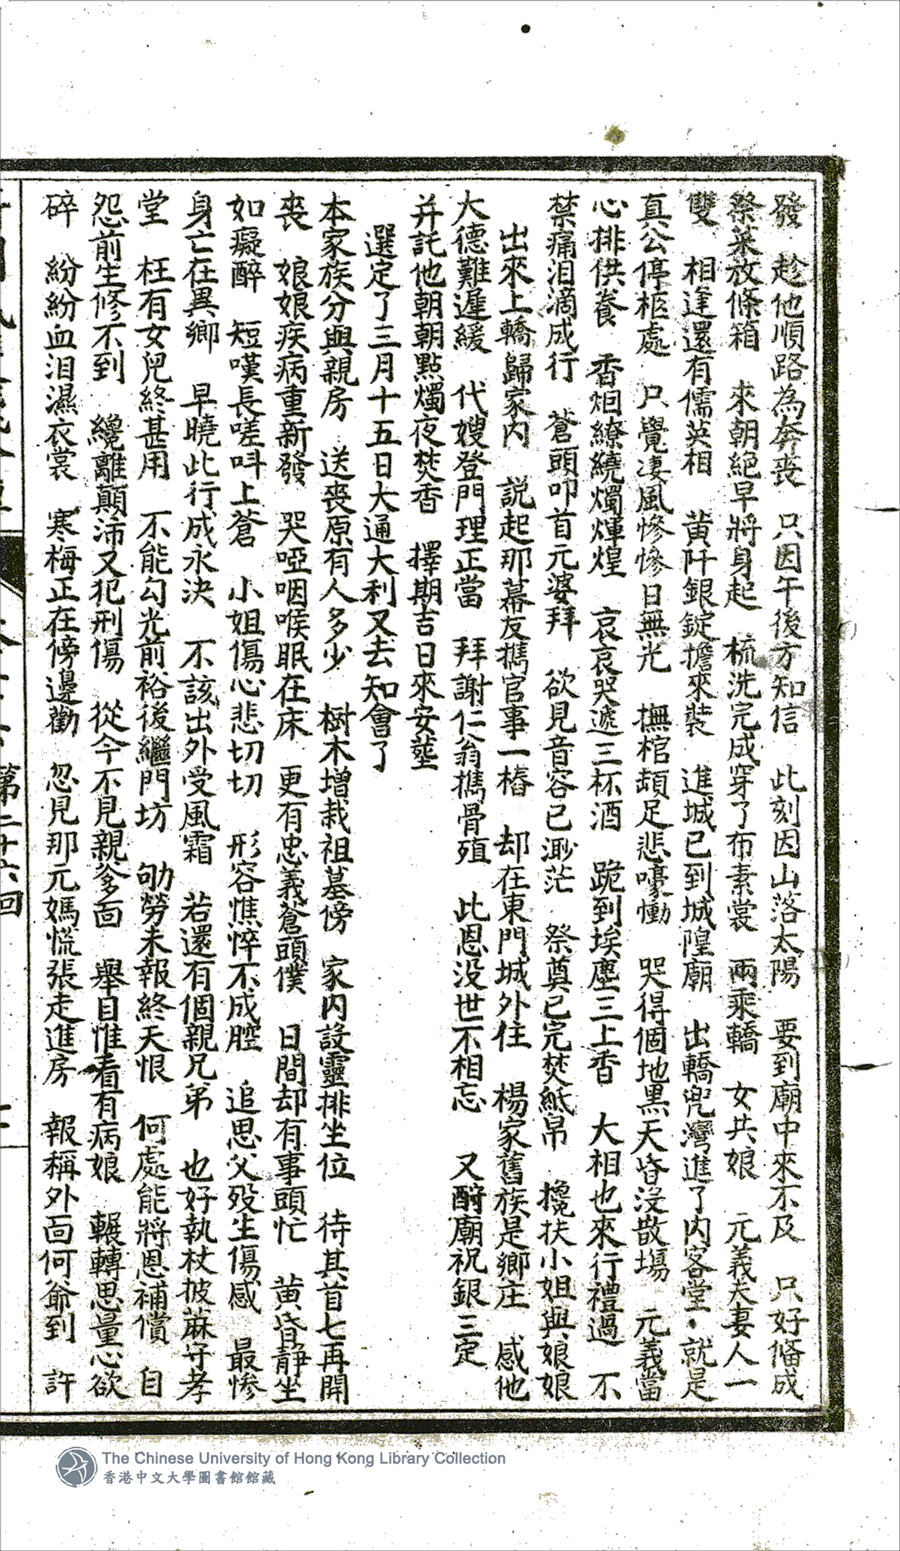 發　趁他順路為奔喪　只因午後方知信　此刻因山落太陽　要到廟中來不及　只好俻成
祭菜放條箱　來朝絕早將身起　梳洗完成穿了布素裳　兩乘轎　女共娘　元義夫妻人一
雙　相逢還有儒英相　黃阡銀錠擔來裝　進城已到城隍廟　出轎兜灣進了内客堂　就是
真公停柩處　只覺淒風慘慘日無光　撫棺頓足悲嚎慟　哭得個地黑天昏沒散場　元義當
心排供養　香烟繚繞燭煇煌　哀哀哭遞三杯酒　跪到埃塵三上香　大相也來行禮過　不
禁痛泪滴成行　蒼頭叩首元婆拜　欲見音容已渺茫　祭奠已完焚紙帛　攙扶小姐與娘娘
出來上轎歸家内　説起那幕友擕官事一樁　却在東門城外住　楊家舊族是鄉庄　感他
大德難遲緩　代嫂登門理正當　拜謝仁翁擕骨殖　此恩没世不相忘　又酧廟祝銀三定
并託他朝朝點燭夜焚香　擇期吉日來安塟
選定了三月十五日大通大利又去知會了
本家族分與親房　送喪原有人多少　樹木增栽祖墓傍　家内設靈排坐位　待其首七再開
喪　娘娘疾病重新發　哭啞咽喉眠在床　更有忠義蒼頭僕　日間却有事頭忙　黃昏静坐
如癡醉　短嘆長嗟呌上蒼　小姐傷心悲切切　形容憔悴不成腔　追思父歿生傷感　最慘
身亡在異鄉　早曉此行成永決　不該出外受風霜　若還有個親兄弟　也好執杖披蔴守孝
堂　枉有女兒終甚用　不能勾光前裕後繼門坊　劬勞未報終天恨　何處能將恩補償　自
怨前生修不到　纔離顛沛又犯刑傷　從今不見親爹面　舉目惟看有病娘　輾轉思量心欲
碎　紛紛血泪濕衣裳　寒梅正在傍邊勸　忽見那元媽慌張走進房　報稱外面何爺到　許
第二十六回
The Chinese University of Hong Kong Library Collection
香港中文大學圖書館館藏